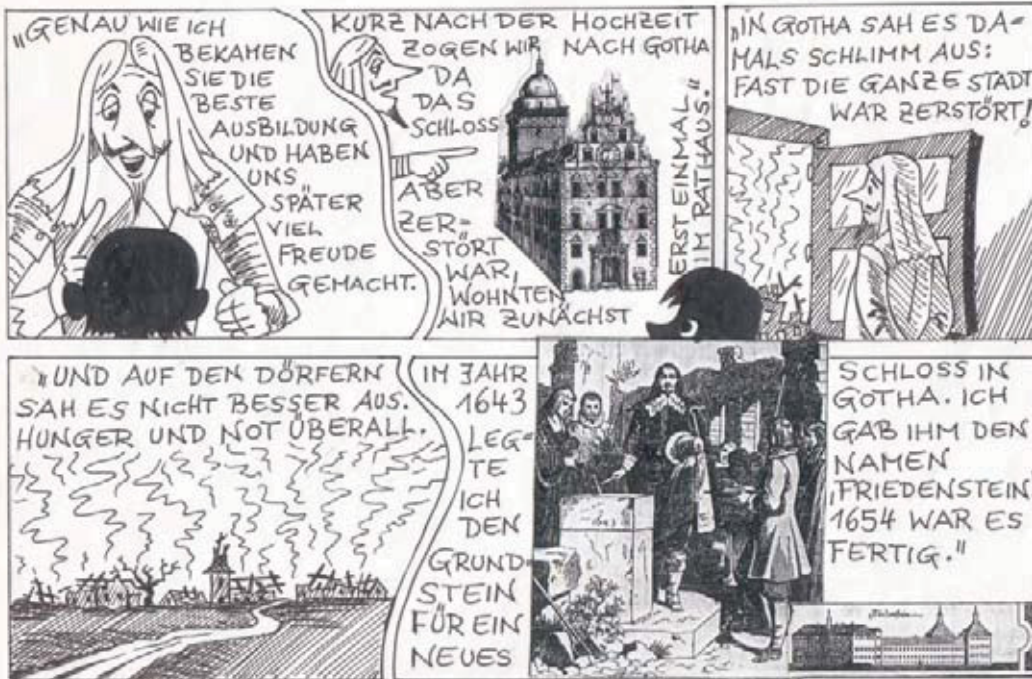 „GENAU WIE ICH
BEKAMEN
SIE DIE
BESTE
AUSBILDUNG
UND HABEN
UNS
SPÄTER
VIEL
FREUDE
GEMACHT.
KURZ NACH DER HOCHZEIT
ZOGEN WIR NACH GOTHA
DA
DAS
SCHLOSS
ABER
ZER-
STÖRT
WAR,
WOHNTEN
WIR ZUNÄCHST
ERST EINMAL
IM RATHAUS.“
„IN GOTHA SAH ES DA-
MALS SCHLIMM AUS:
FAST DIE GANZE STADT
WAR ZERSTÖRT!
„UND AUF DEN DÖRFERN
SAH ES NICHT BESSER AUS.
HUNGER UND NOT ÜBERALL.
IM JAHR
1643
LEG-
TE
ICH
DEN
GRUND-
STEIN
FÜR EIN
NEUES
SCHLOSS IN
GOTHA. ICH
GAB IHM DEN
NAMEN
‚FRIEDENSTEIN
1654 WAR ES
FERTIG.“